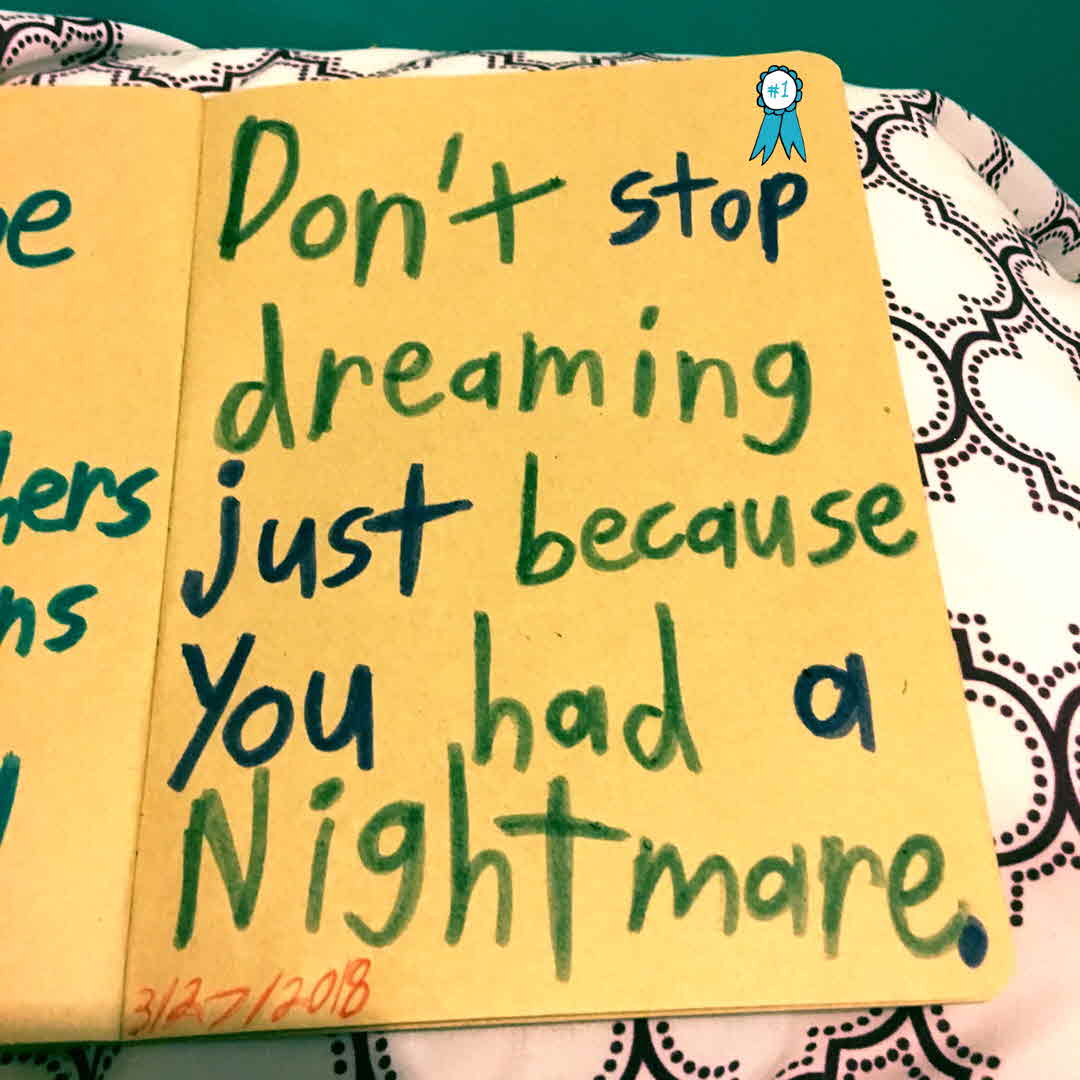 #1
Don't stop
dreaming
just because
You had a
Nightmare.
3/27/2018